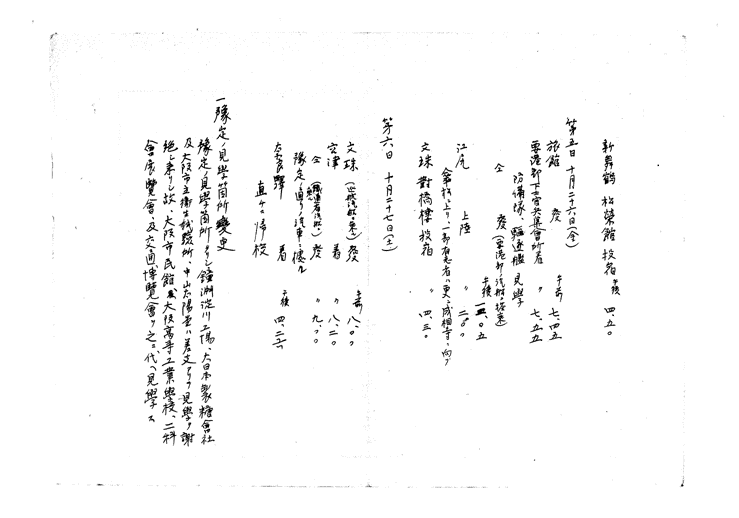 新舞鶴 松榮館投宿 午後 四.五〇
第五日 十月二十六日(金)
旅館 發 午前 七.四五
要港部下士官兵集會所着 〃 七.五五
防備隊、驅逐艦 見學
仝 發(要港部ノ汽船ニ搭乘) 午後 一.〇五
江尻 上陸 〃 二.〇〇
傘松ニ上リ、一部有志者ハ更ニ成相寺ニ向フ
文珠 對橋樓投宿 〃 四.三〇
第六日 十月二十七日(土)
文珠 發 午前 八.〇〇
宮津 着 〃 八.二〇
仝 發 〃 九.〇〇
豫定ノ通リノ汽車ニ乘ル
奈良驛 着 午後 四.二六
直チニ歸校
一、豫定ノ見學箇所變更
豫定ノ見學箇所タリシ鐘淵淀川工場、大日本製糖會社
及大阪市立衞生試驗所、中山太陽堂ハ差支アリテ見學ヲ謝
絶シ來リシ故、大阪市民館、大阪高等工業學校、二科
會展覽會、及交通博覽會ヲ之ニ代ヘ見學ス